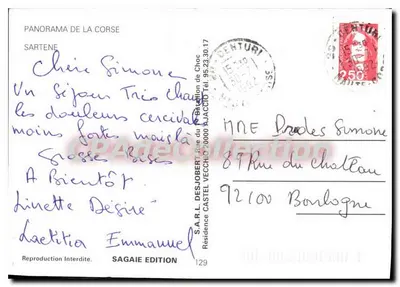 PANORAMA DE LA CORSE
SARTENE
Chère Simone
Un Séjour Très chaud
les douleurs cervicale
moins fortes mais là
Grosses Bises
A Bientôt
Linette Désiré
Laetitia Emmanuel
Reproduction Interdite. SAGAIE EDITION 129
S.A.R.L. DESJOBERT
Résidence CASTEL VECCHIO 20000 AJACCIO Tél. 95.23.30.17
CENTURI
2,50
MME Simone
89 Rue du château
92100 Boulogne
CPA de Collection